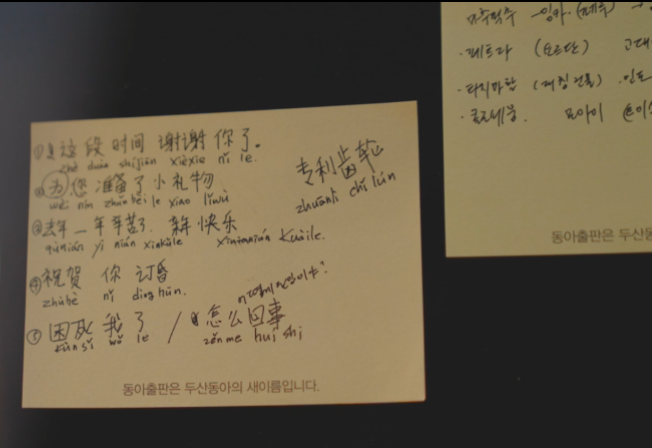 ① 这段时间 谢谢你了。
zhè duàn shíjiān xièxie nǐ le.
② 为您准备了小礼物
wèi nín zhǔnbèi le xiǎo lǐwù
③ 去年一年辛苦了. 新年快乐
qùnián yì nián xīnkǔle xīnnián kuàile.
④ 祝贺 你 订婚
zhùhè nǐ dìng hūn.
⑤ 困死我了 / 怎么回事
kùn sǐ wǒ le zěnme huí shì
专利齿轮
zhuānlì chǐ lún
동아출판은 두산동아의 새이름입니다.
마추픽추 - 잉카 (페루)
·페트라 (요르단) 고대
·타지마할 인도
모아이
동아출판은 두산동